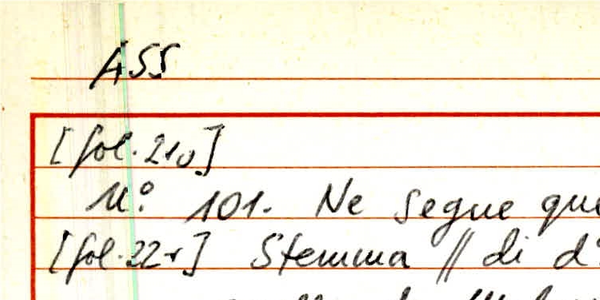 ASS
[fol. 21v]
N.° 101. Ne segue que
[fol. 22r] Stemma // di d